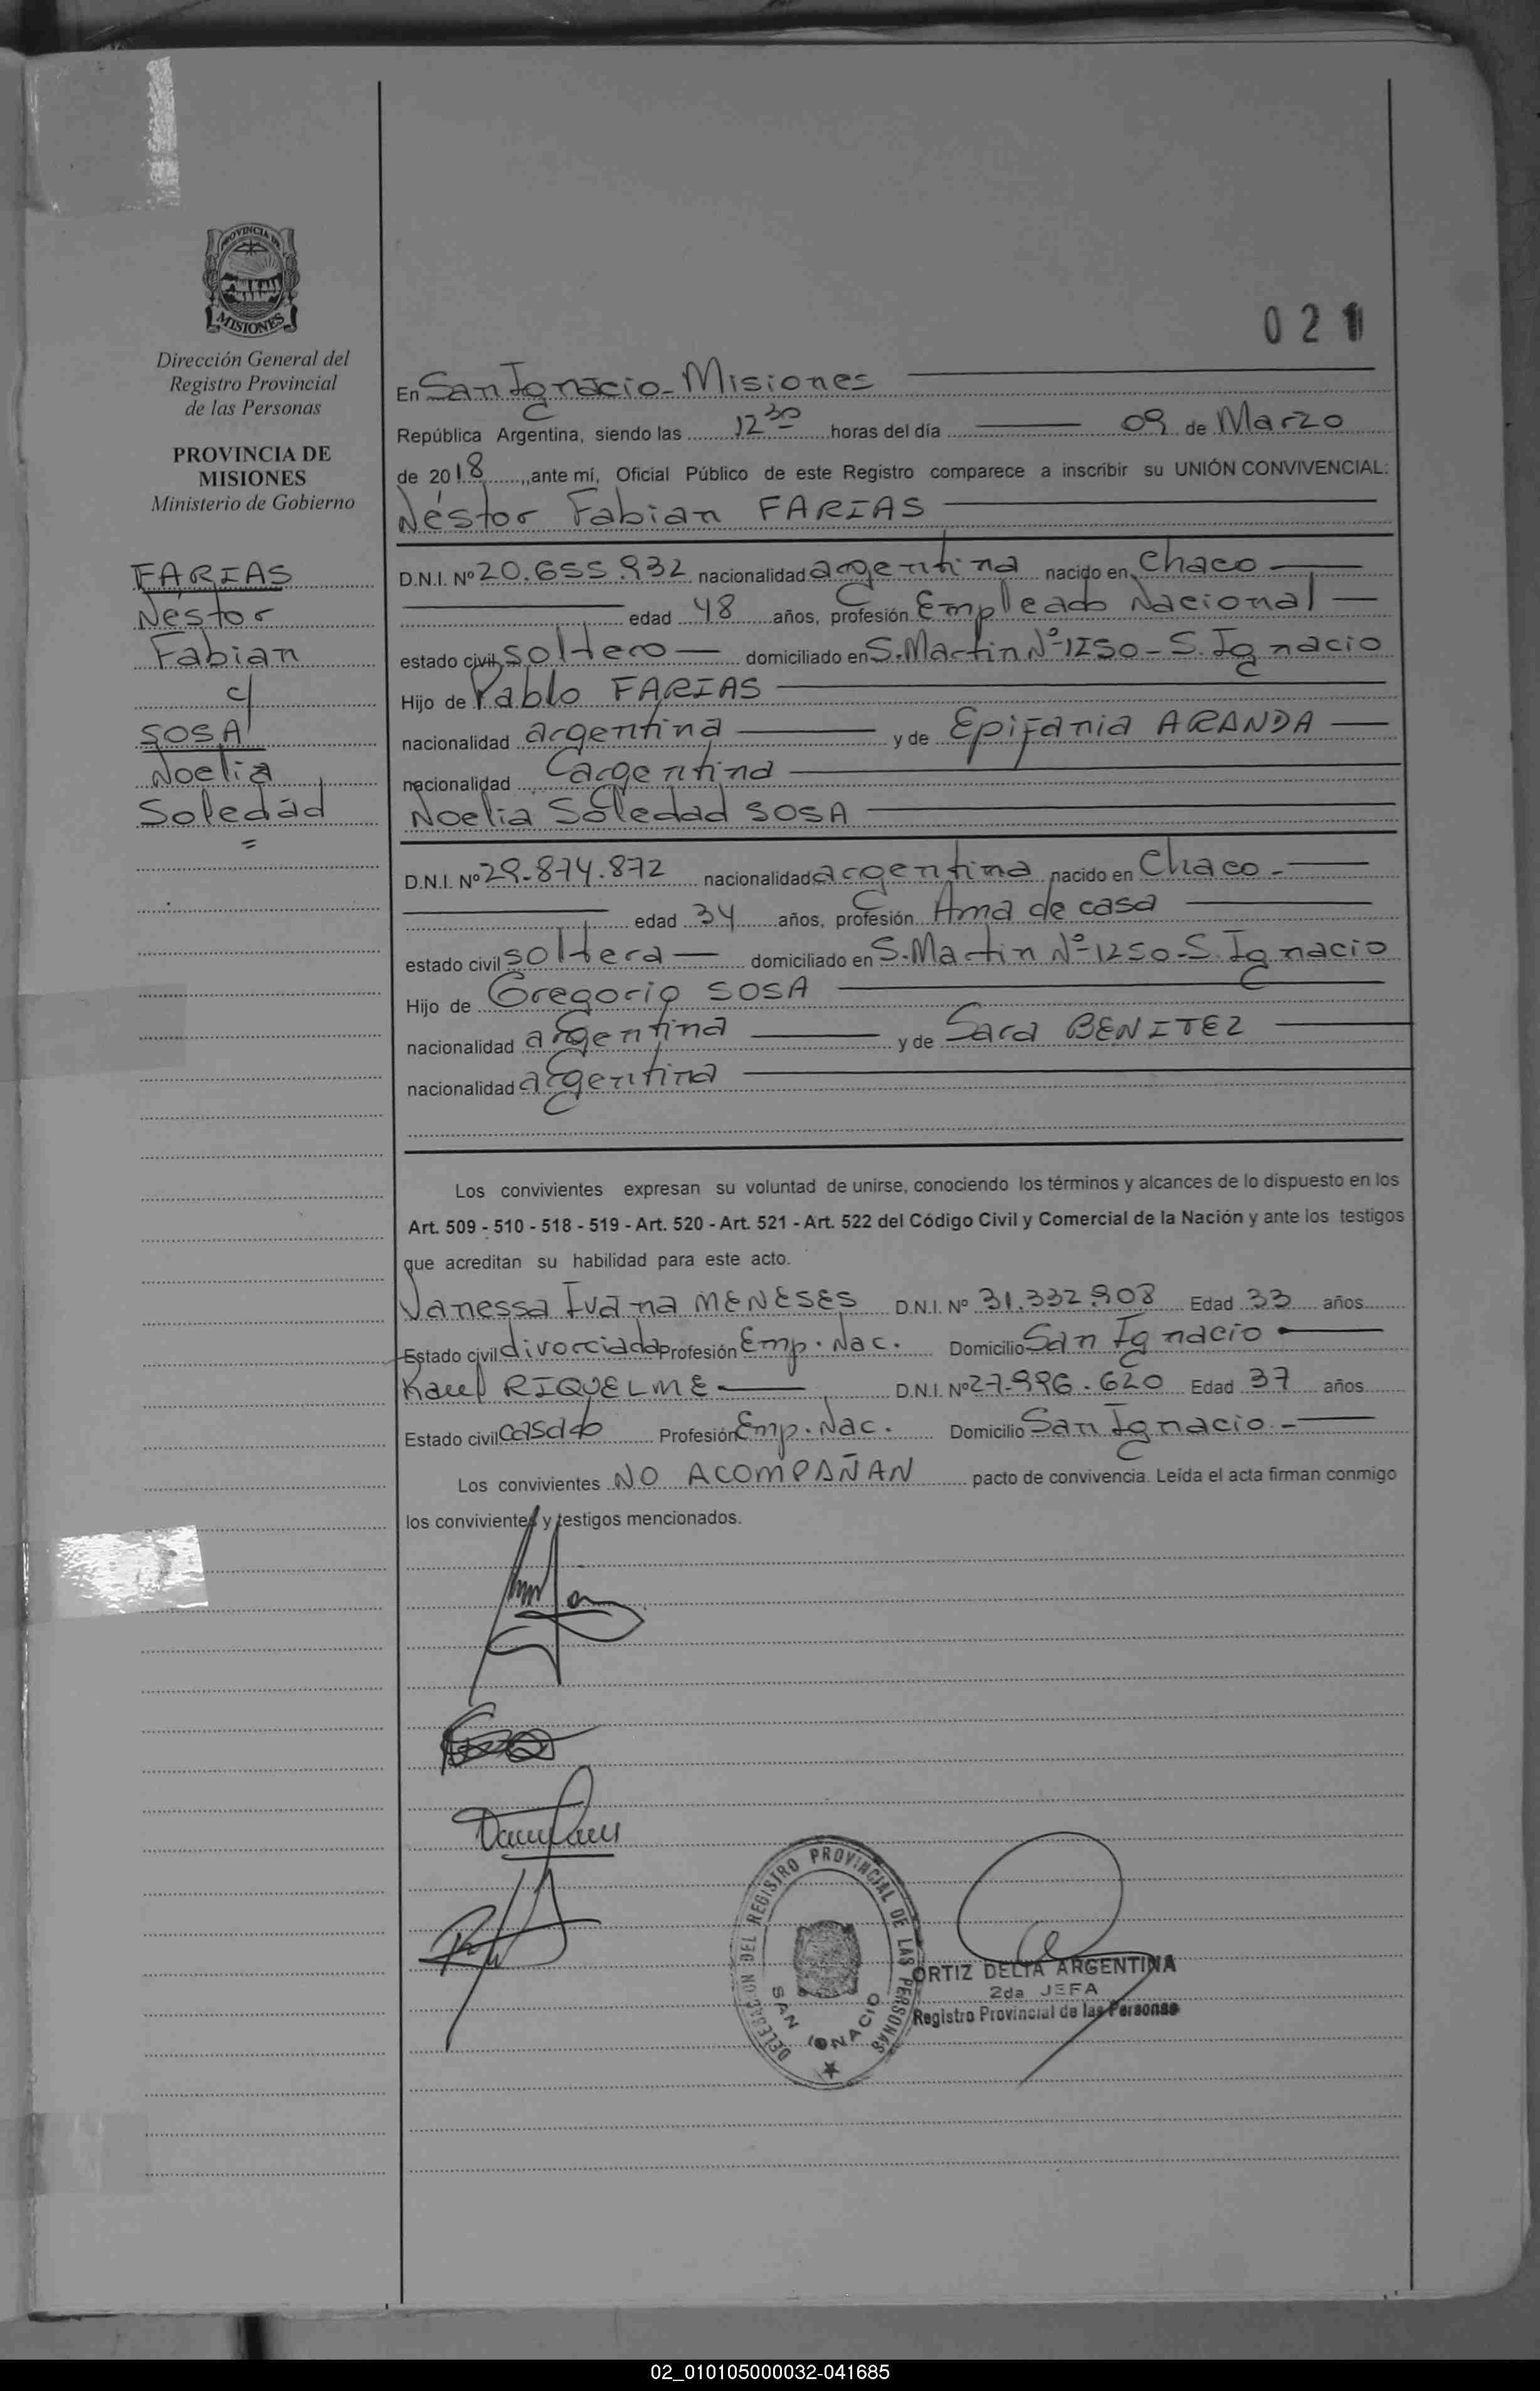 PROVINCIA DE
MISIONES
Dirección General del
Registro Provincial
de las Personas
PROVINCIA DE
MISIONES
Ministerio de Gobierno
FARIAS
Néstor
Fabian
c/
SOSA
Noelia
Soledad
=
021
En San Ignacio - Misiones
República Argentina, siendo las 12 30 horas del día 09 de Marzo
de 2018, ante mí, Oficial Público de este Registro comparece a inscribir su UNIÓN CONVIVENCIAL:
Néstor Fabian FARIAS
D.N.I. Nº 20.655.932 nacionalidad argentina nacido en Chaco
edad 48 años, profesión Empleado Nacional
estado civil soltero domiciliado en S. Martin Nº 1250 - S. Ignacio
Hijo de Pablo FARIAS
nacionalidad argentina y de Epifania ARANDA
nacionalidad argentina
Noelia Soledad SOSA
D.N.I. Nº 29.874.872 nacionalidad argentina nacido en Chaco -
edad 34 años, profesión Ama de casa
estado civil soltera domiciliado en S. Martin Nº 1250 - S. Ignacio
Hijo de Gregorio SOSA
nacionalidad argentina y de Sara BENITEZ
nacionalidad argentina
Los convivientes expresan su voluntad de unirse, conociendo los términos y alcances de lo dispuesto en los
Art. 509 - 510 - 518 - 519 - Art. 520 - Art. 521 - Art. 522 del Código Civil y Comercial de la Nación y ante los testigos
que acreditan su habilidad para este acto.
Vanessa Ivana MENESES D.N.I. Nº 31.332.908 Edad 33 años
Estado civil divorciada Profesión Emp. Nac. Domicilio San Ignacio
Raul RIQUELME D.N.I. Nº 27.996.620 Edad 37 años
Estado civil casado Profesión Emp. Nac. Domicilio San Ignacio -
Los convivientes NO ACOMPAÑAN pacto de convivencia. Leída el acta firman conmigo
los convivientes y testigos mencionados.
DELEGACION DEL REGISTRO PROVINCIAL DE LAS PERSONAS
SAN IGNACIO
ORTIZ DELIA ARGENTINA
2da JEFA
Registro Provincial de las Personas
02_010105000032-041685